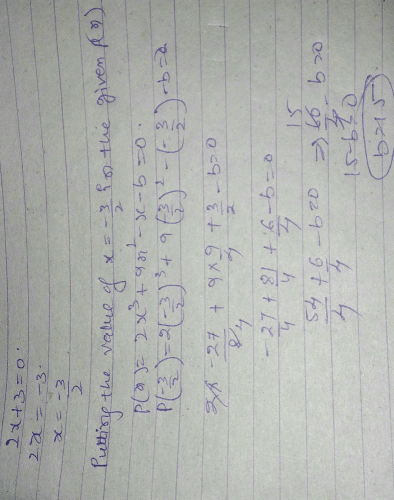 2x+3=0.
2x = -3.
x = -3/2
Putting the value of x = -3/2 in the given p(x)
P(x) = 2x³ + 9x² - x - b = 0.
P(-3/2) = 2(-3/2)³ + 9(-3/2)² - (-3/2) - b = 0
2 × -27/8 4 + 9 × 9/4 + 3/2 - b = 0
-27/4 + 81/4 + 6/4 - b = 0
54/4 + 6/4 - b = 0 ⇒ 60/4 15 - b = 0
15 - b = 0
b = 15